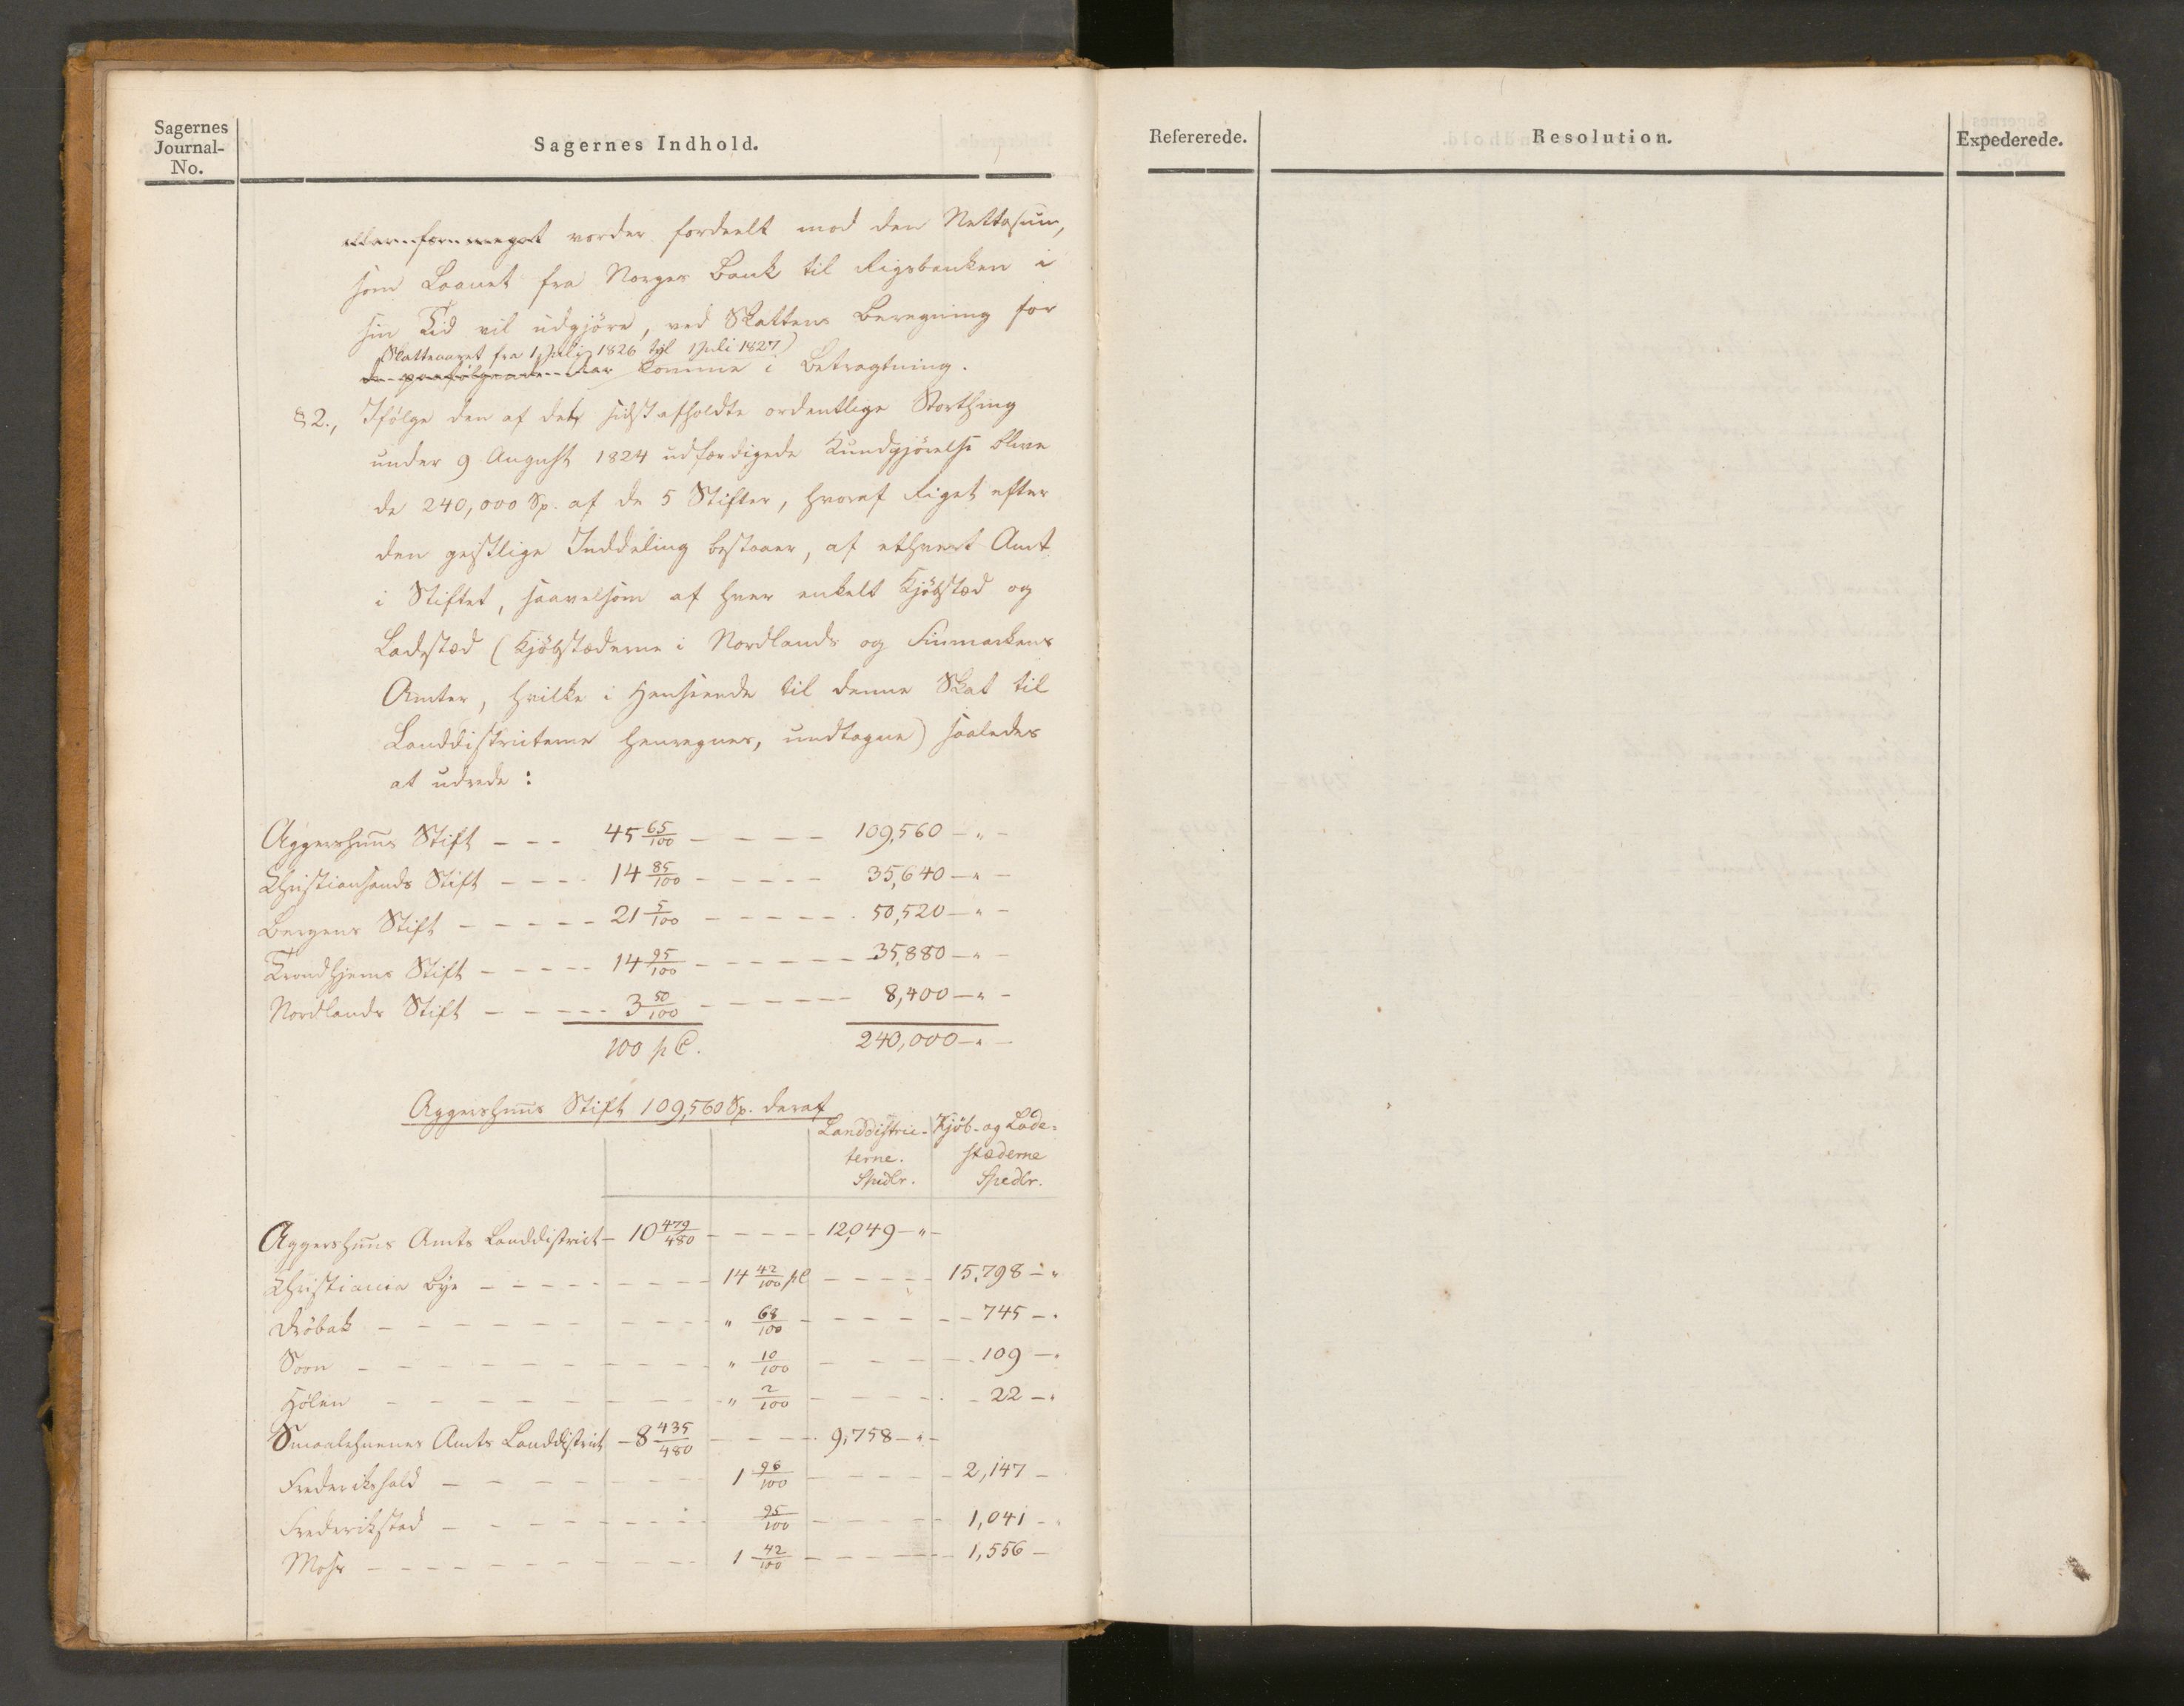 Sagernes
Journal-
No.
Sagernes Indhold.
vorder fordeelt mod den Nettosum,
som Laanet fra Norges Bank til Rigsbanken i
sin Tid vil udgjöre, ved Skattens Beregning for
Skatteaaret fra 1 Juli 1826 til 1 Juli 1827
de paafølgende Aar komme i Betragtning.
§ 2., Ifölge den af det sidst afholdte ordentlige Storthing
under 9 August 1824 udfærdigede Kundgjörelse blive
de 240,000 Sp. af de 5 Stifter, hvoraf Riget efter
den geistlige Inddeling bestaaer, af ethvert Amt
i Stiftet, saavelsom af hver enkelt Kjöbstad og
Ladestæd (Kjöbstæderne i Nordlands og Finmarkens
Amter, hvilke i Henseende til denne Skat til
Landdistricterne henregnes, undtagne) saaledes
at udrede:
Aggershuus Stift - - - 45 65/100 - - - - 109,560 - " -
Christiansands Stift - - - - 14 85/100 - - - - - 35,640 - " -
Bergens Stift - - - - - 21 5/100 - - - - - - 50,520 - " -
Trondhjems Stift - - - - - 14 95/100 - - - - - - 35,880 - " -
Nordlands Stift - - - - - 3 50/100 - - - - - - 8,400 - " -
100 pC. 240,000 - " -
Aggershuus Stift 109,560 Sp. deraf
Landdistric- Kjöb- og Lade-
terne. stæderne
Spedlr. Spedlr.
Aggershuus Amts Landdistrict - 10 479/480 - - - - - 12,049 - " -
Christiania Bye - - - - - - - - 14 42/100 pC - - - - - 15,798 - "
Dröbak - - - - - - - - - - " 68/100 - - - - - - 745 - "
Soon - - - - - - - - - - " 10/100 - - - - - 109 - "
Hölen - - - - - - - - - " 2/100 - - - - - - 22 - "
Smaalehnenes Amts Landdistrict - 8 435/480 - - - - - 9,758 - " -
Frederikshald - - - - - - - - 1 96/100 - - - - - 2,147 -
Frederikstad - - - - - - - - 95/100 - - - - - 1,041 - "
Moss - - - - - - - - - 1 42/100 - - - - - - 1,556 -
Refererede.
Resolution.
Expederede.